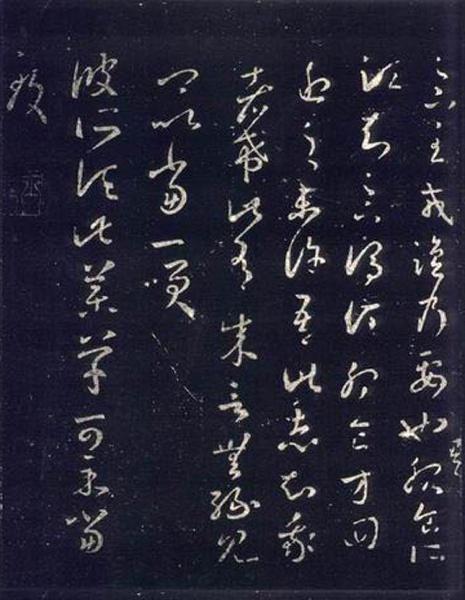 足下至戎鹽乃要也是服食所
須知足下謂須服食方回
近之未許吾此志知我
者希此有成言無緣見
卿以當一笑
彼所須此藥草可示當
致